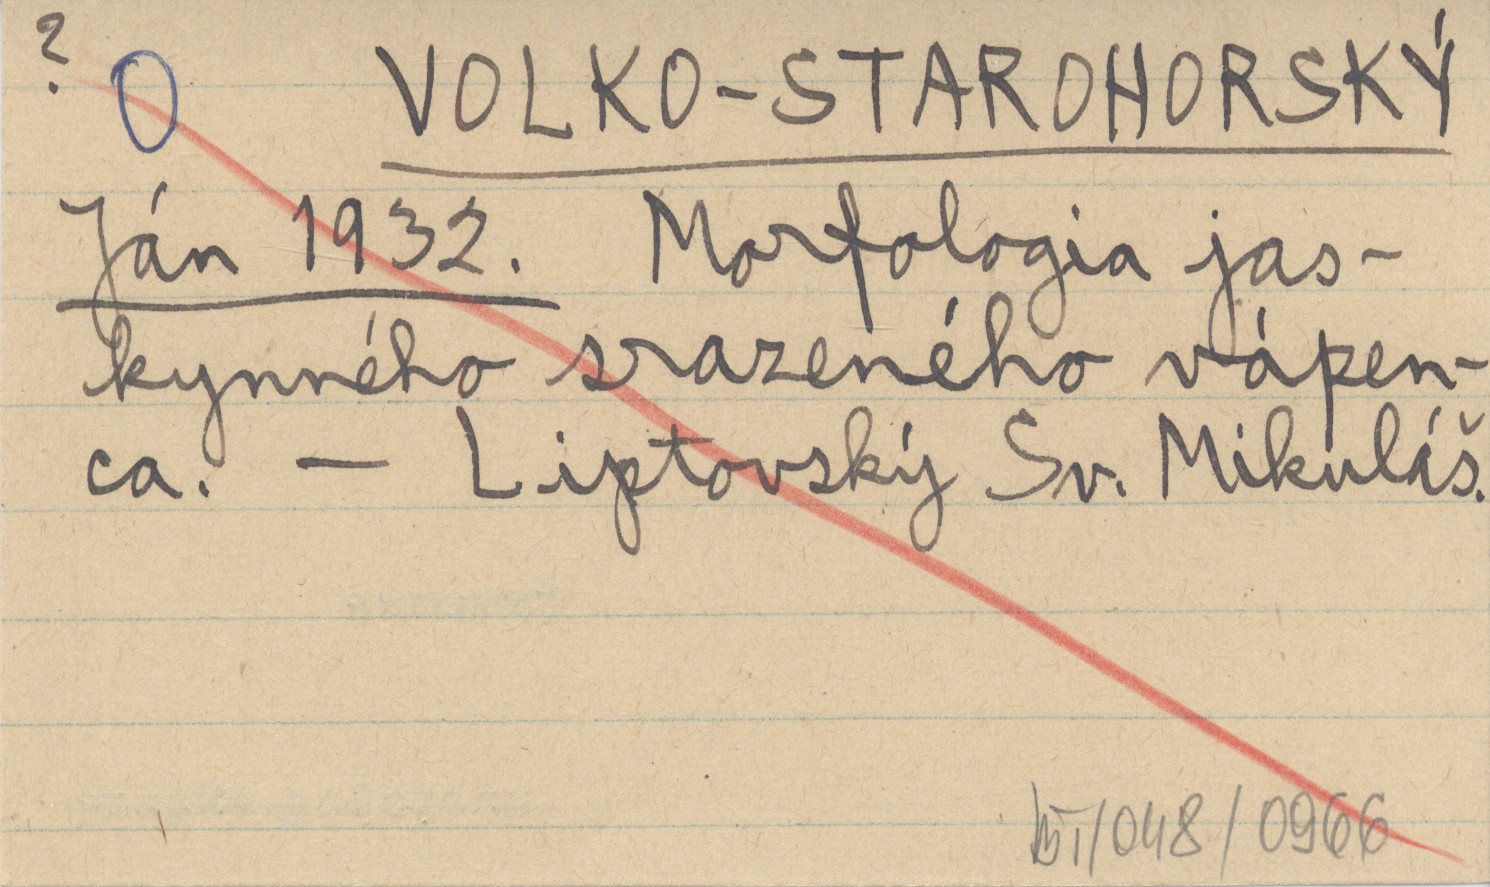 ? O VOLKO-STAROHORSKÝ
Ján 1932. Morfologia jas-
kynného srazeného vápen-
ca. — Liptovský Sv. Mikuláš.
/048/0966